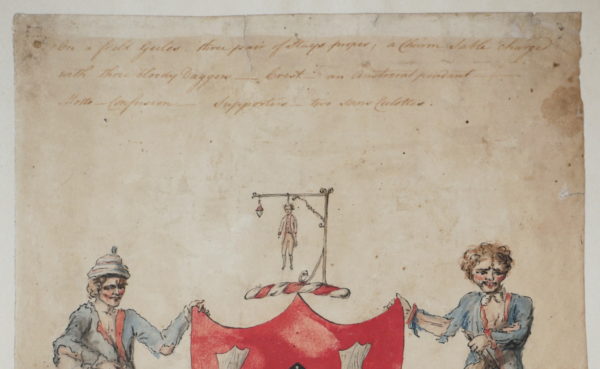 On a field Gules three pair of Stays proper; a Chevron Sable charged
with three bloody Daggers — Crest — an Aristocrat pendent —
Motto — Confusion — Supporters — two sans Culottes.